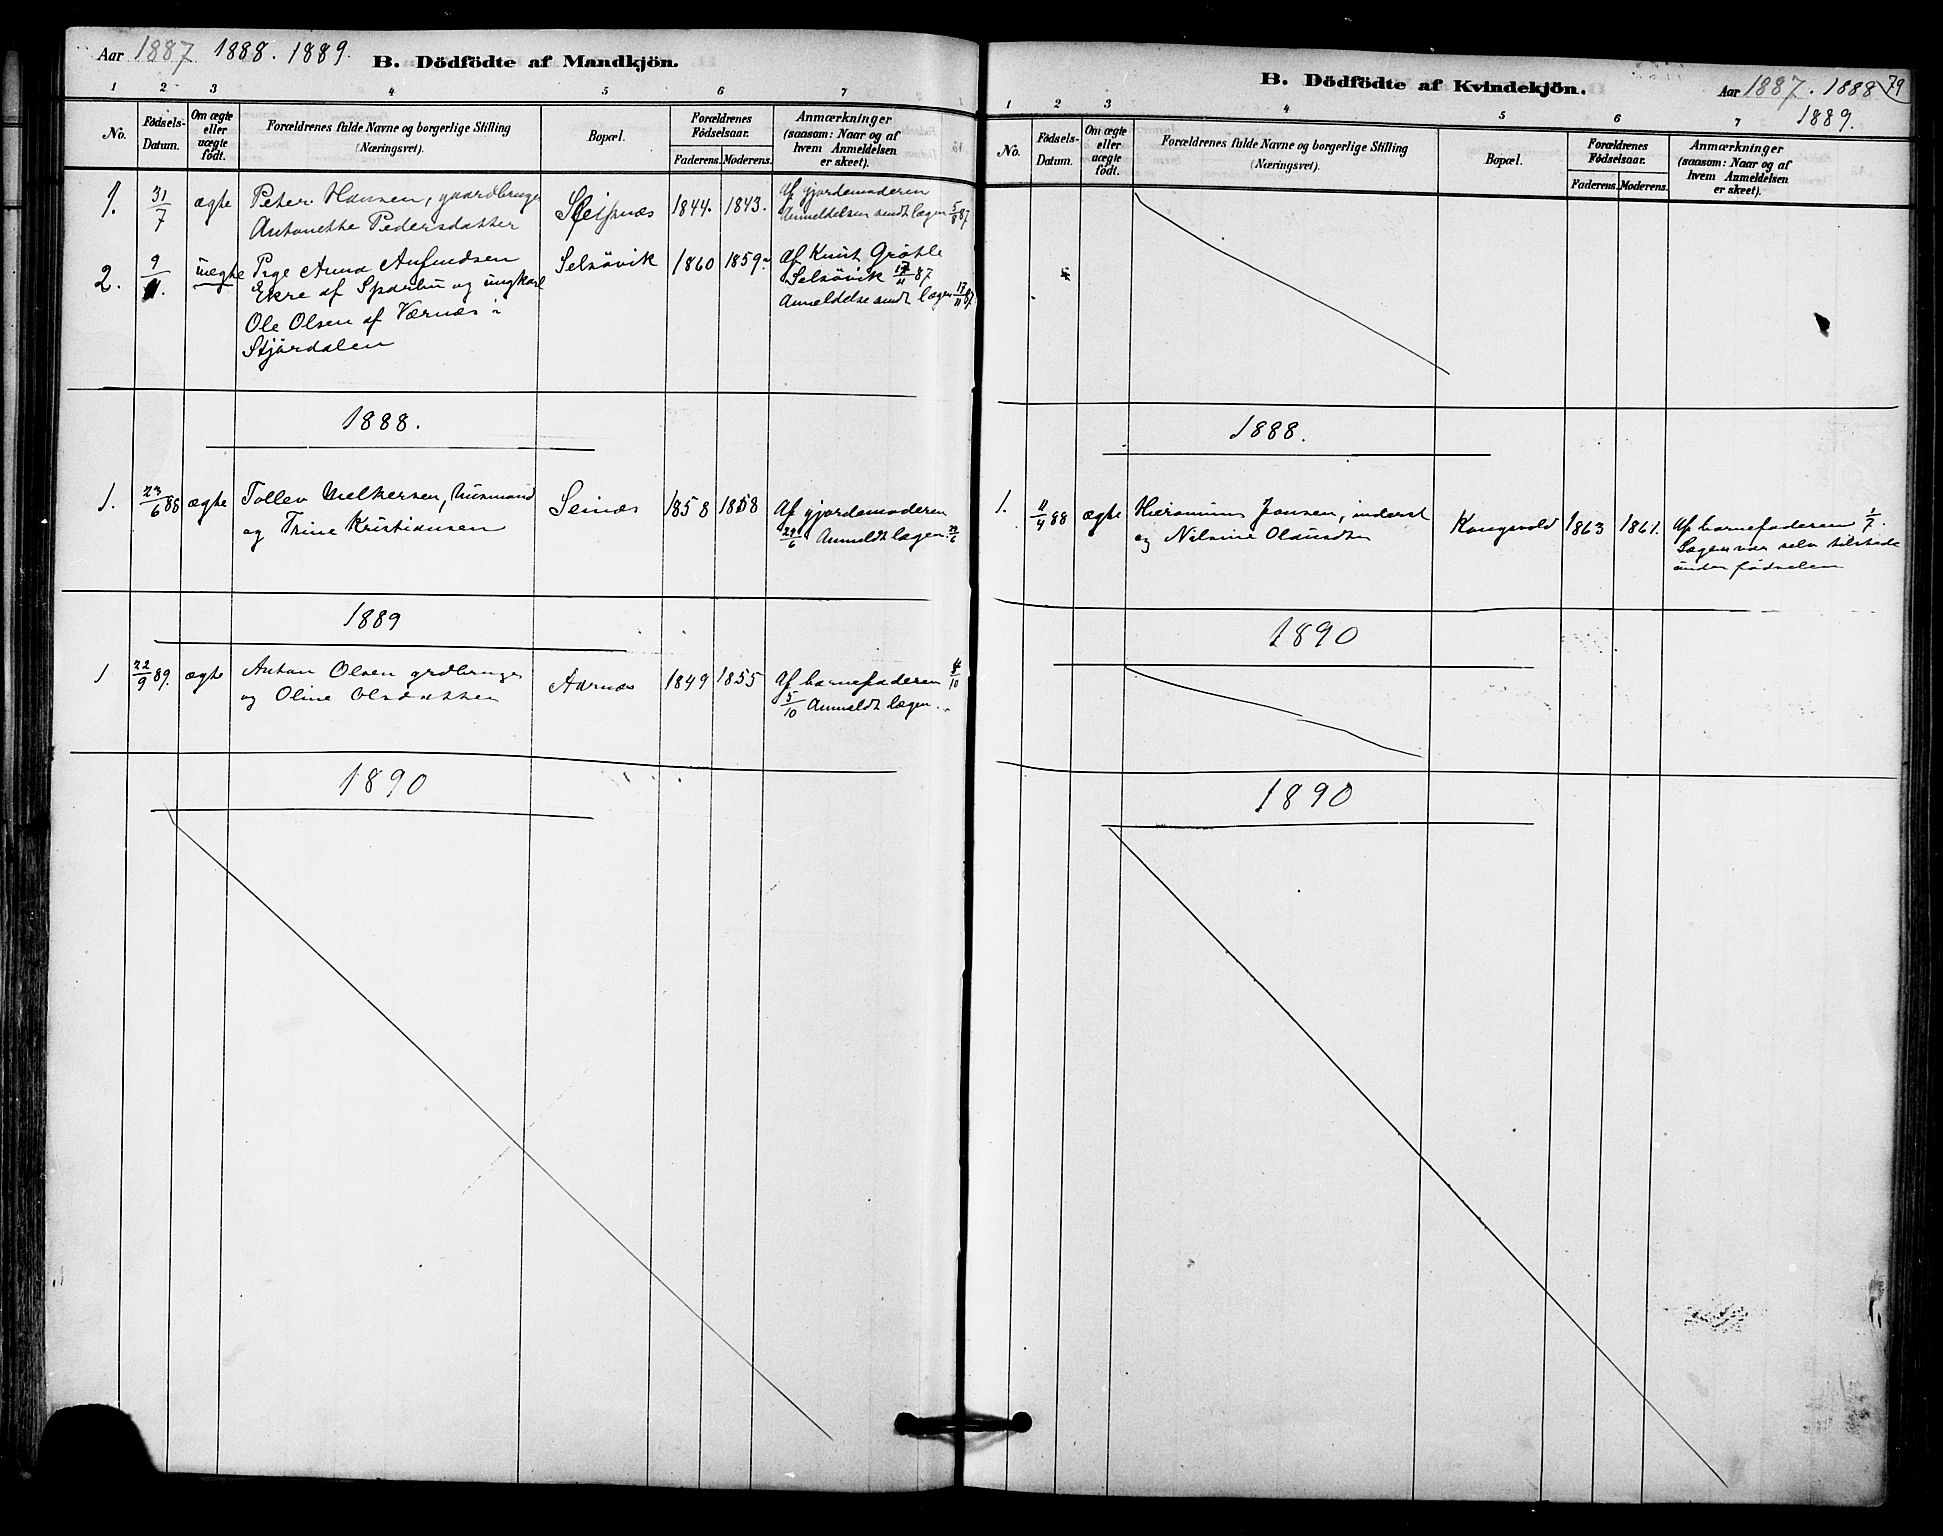 Aar 1887 1888. 1889.
B. Dödfödte af Mandkjön.
1 2 3 4 5 6 7
No.
Födsels-Datum.
Om ægte eller uægte födt.
Forældrenes fulde Navne og borgerlige Stilling
(Næringsvei).
Bopæl.
Forældrenes Födselsaar.
Faderens. Moderens.
Anmærkninger
(saasom: Naar og af
hvem Anmeldelsen
er skeet).
1. 31/7 ægte Peter Hansen, gaardbruger 1844. 1843. Af gjordemoderen
Antonette Pedersdatter Anmeldelsen sendt lægen 5/8 87
2. 9/11. uægte Pige Anna Selsövik 1860 1859. Af Knut Grötle
Ekre af Sparbu og ungkarl Selsövik 17/11 87
Ole Olsen af Værnæs i Anmeldelse sendt lægen 17/11 87
Stjördalen
1888.
1. 23/6 88 ægte Tollev Melkersen, husmand Seinæs 1858 1858 Af gjordemoderen
og Trine Kristiansen 29/6 Anmeldt lægen
1889
1 22/9 89. ægte Anton Olsen grdbruger Aarnæs 1849 1855 Af barnefaderen 4/10
og Oline Olsdatter 5/10 Anmeldt lægen.
1890
B. Dödfödte af Kvindekjön.
Aar 1887. 1888 79
1889.
1 2 3 4 5 6 7
No.
Födsels-Datum.
Om ægte eller uægte födt.
Forældrenes fulde Navne og borgerlige Stilling
(Næringsvei).
Bopæl.
Forældrenes Födselsaar.
Faderens. Moderens.
Anmærkninger
(saasom: Naar og af
hvem Anmeldelsen
er skeet).
1888.
1. 11/4 88 ægte Hieronimus Jansen, inderst Kongsvold 1863 1861. Af barnefaderen 1/7.
og Nilsine Lægen var selv tilstede
under födselen
1890
1890